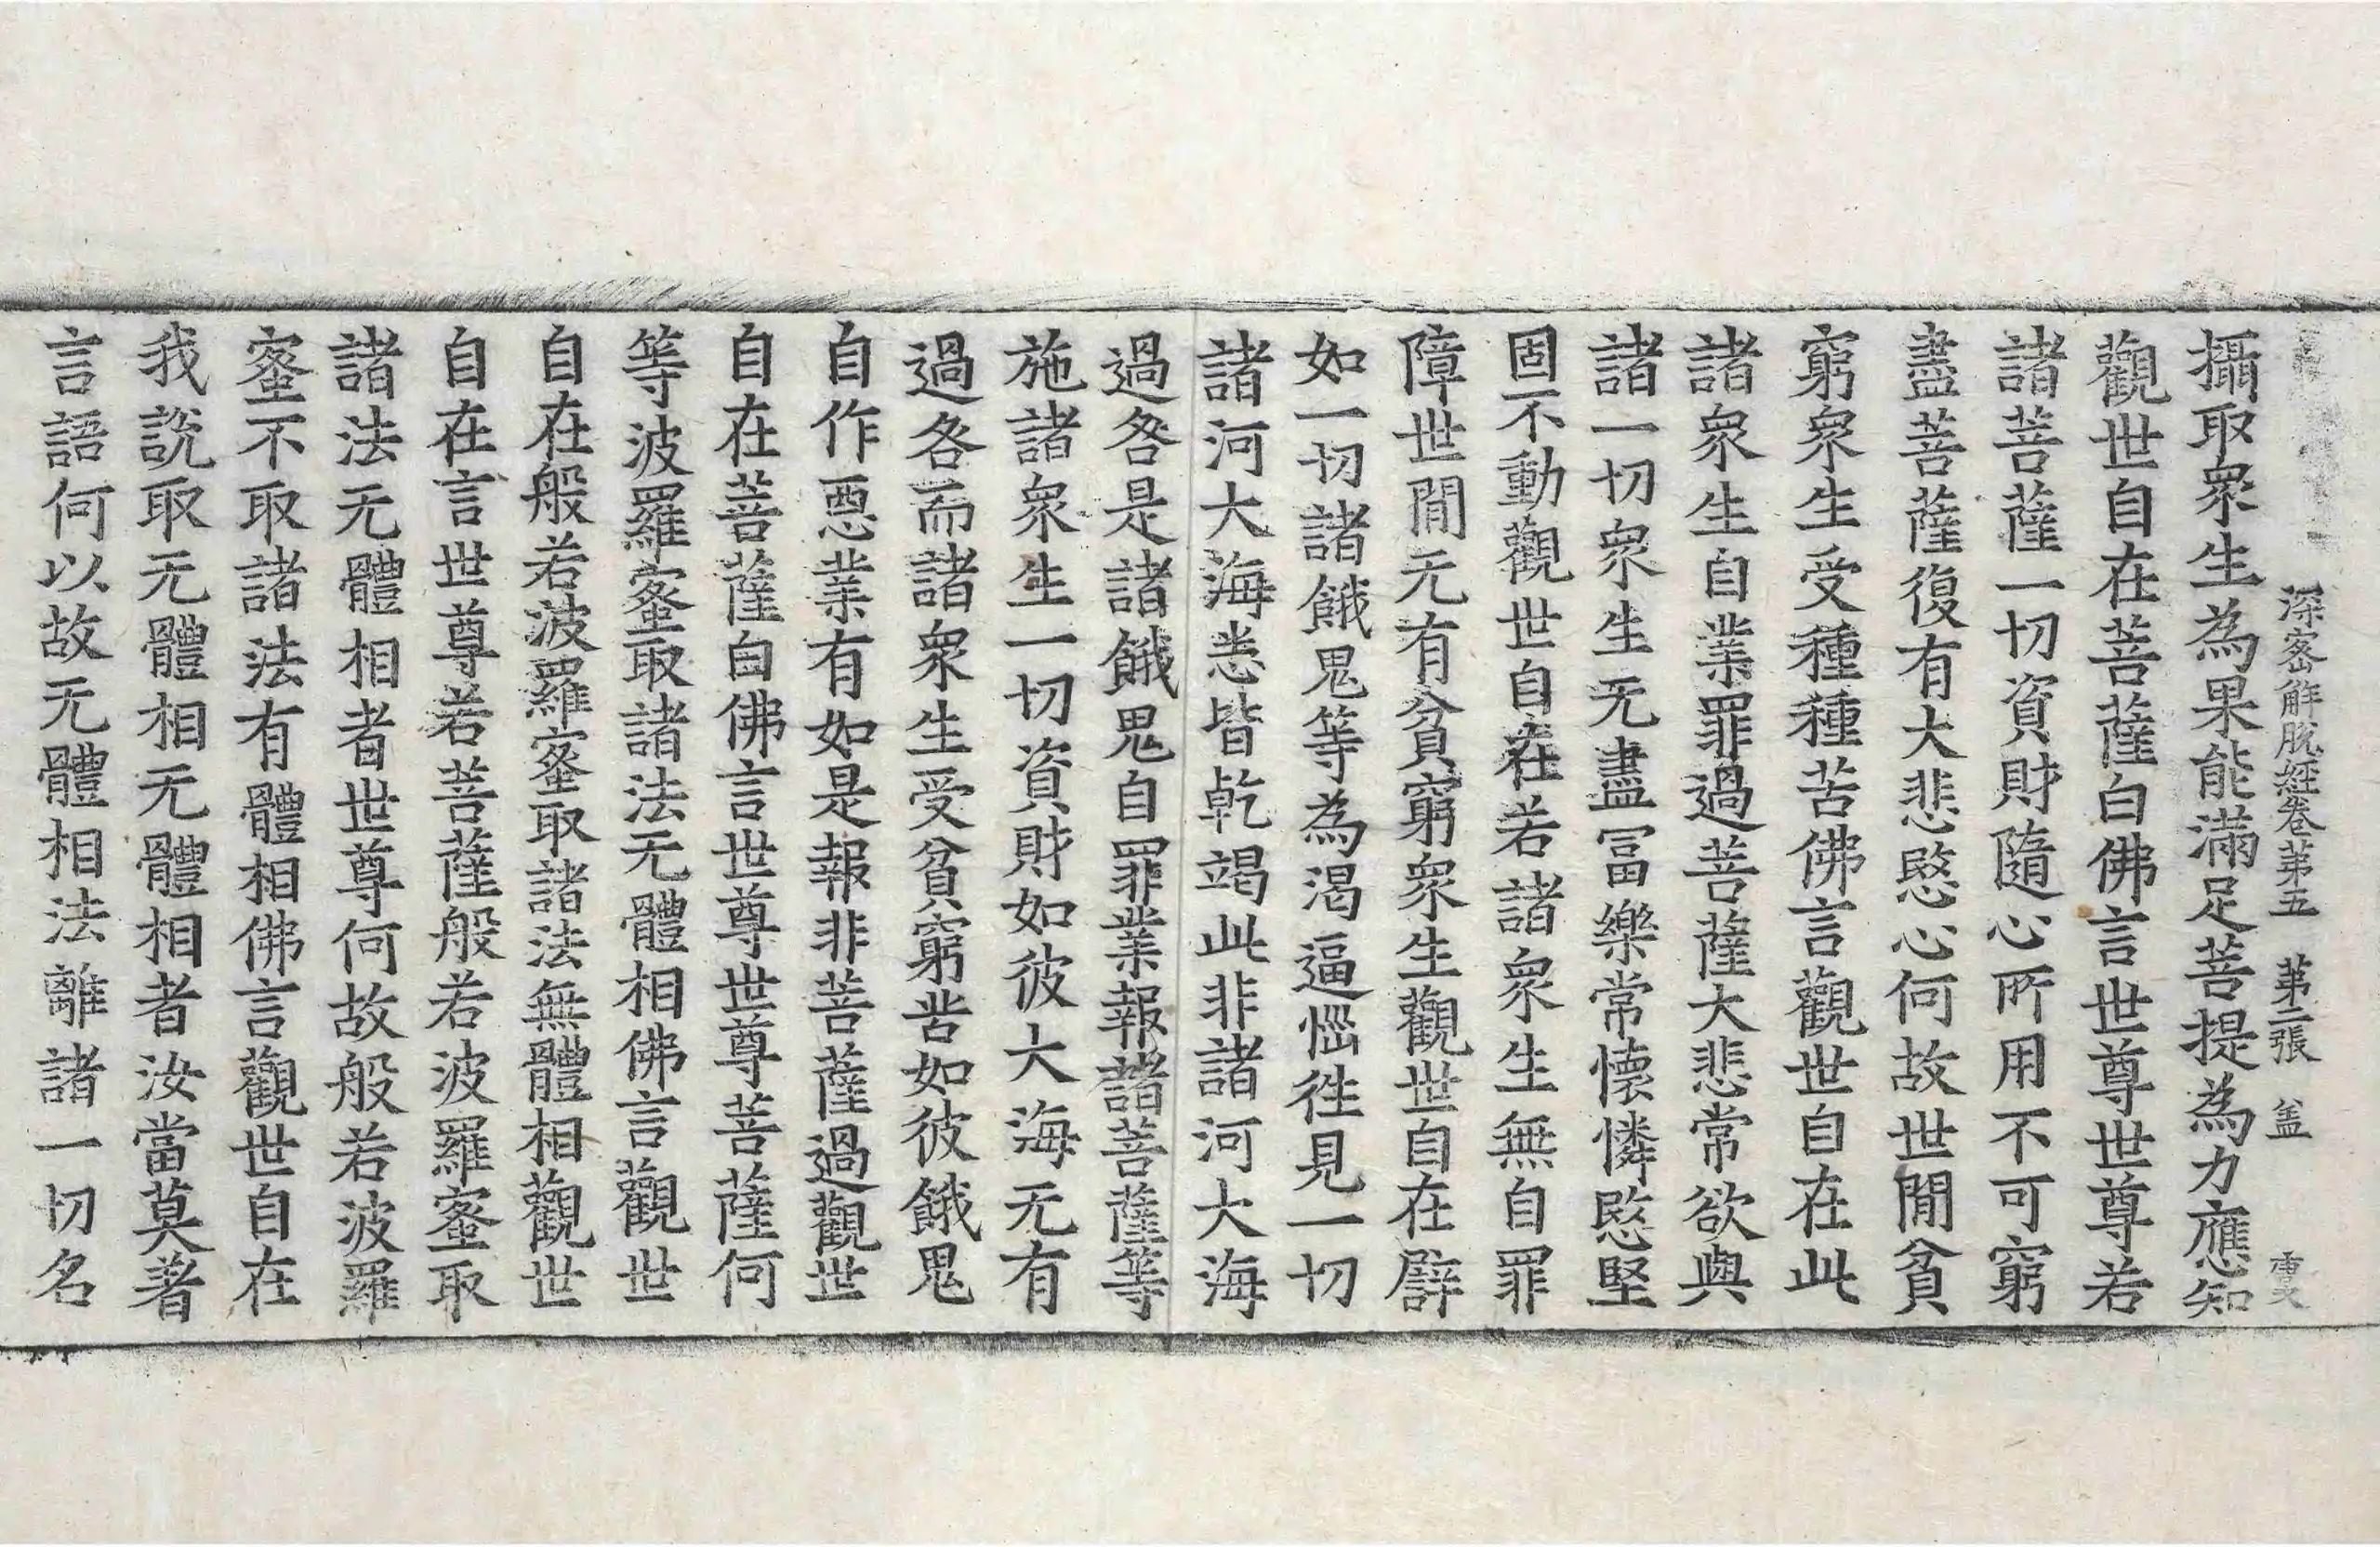 深密解脫經卷苐五 苐二張 盆
攝取衆生為果能滿足菩提為力應知
觀世自在菩薩白佛言世尊世尊若
諸菩薩一切資財隨心所用不可窮
盡菩薩復有大悲愍心何故世間貧
窮衆生受種種苦佛言觀世自在此
諸衆生自業罪過菩薩大悲常欲與
諸一切衆生无盡冨樂常懷憐愍堅
固不動觀世自在若諸衆生無自罪
障世間无有貧窮衆生觀世自在譬
如一切諸餓鬼等為渴逼惱徃見一切
諸河大海悉皆乾竭此非諸河大海
過咎是諸餓鬼自罪業報諸菩薩等
施諸衆生一切資財如彼大海无有
過咎而諸衆生受貧窮苦如彼餓鬼
自作惡業有如是報非菩薩過觀世
自在菩薩白佛言世尊世尊菩薩何
等波羅蜜取諸法无體相佛言觀世
自在般若波羅蜜取諸法無體相觀世
自在言世尊若菩薩般若波羅蜜取
諸法无體相者世尊何故般若波羅
蜜不取諸法有體相佛言觀世自在
我說取无體相无體相者汝當莫著
言語何以故无體相法離諸一切名